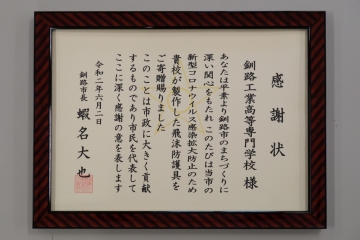 感謝状
釧路工業高等専門学校 様
あなたは平素より釧路市のまちづくりに
深い関心をもたれ このたびは当市の
新型コロナウイルス感染拡大防止のため
貴校が製作した飛沫防護具を
ご寄贈賜りました
このことは市政に大きく貢献
するものであり市民を代表して
ここに深く感謝の意を表します
令和二年六月二日
釧路市長 蝦名大也